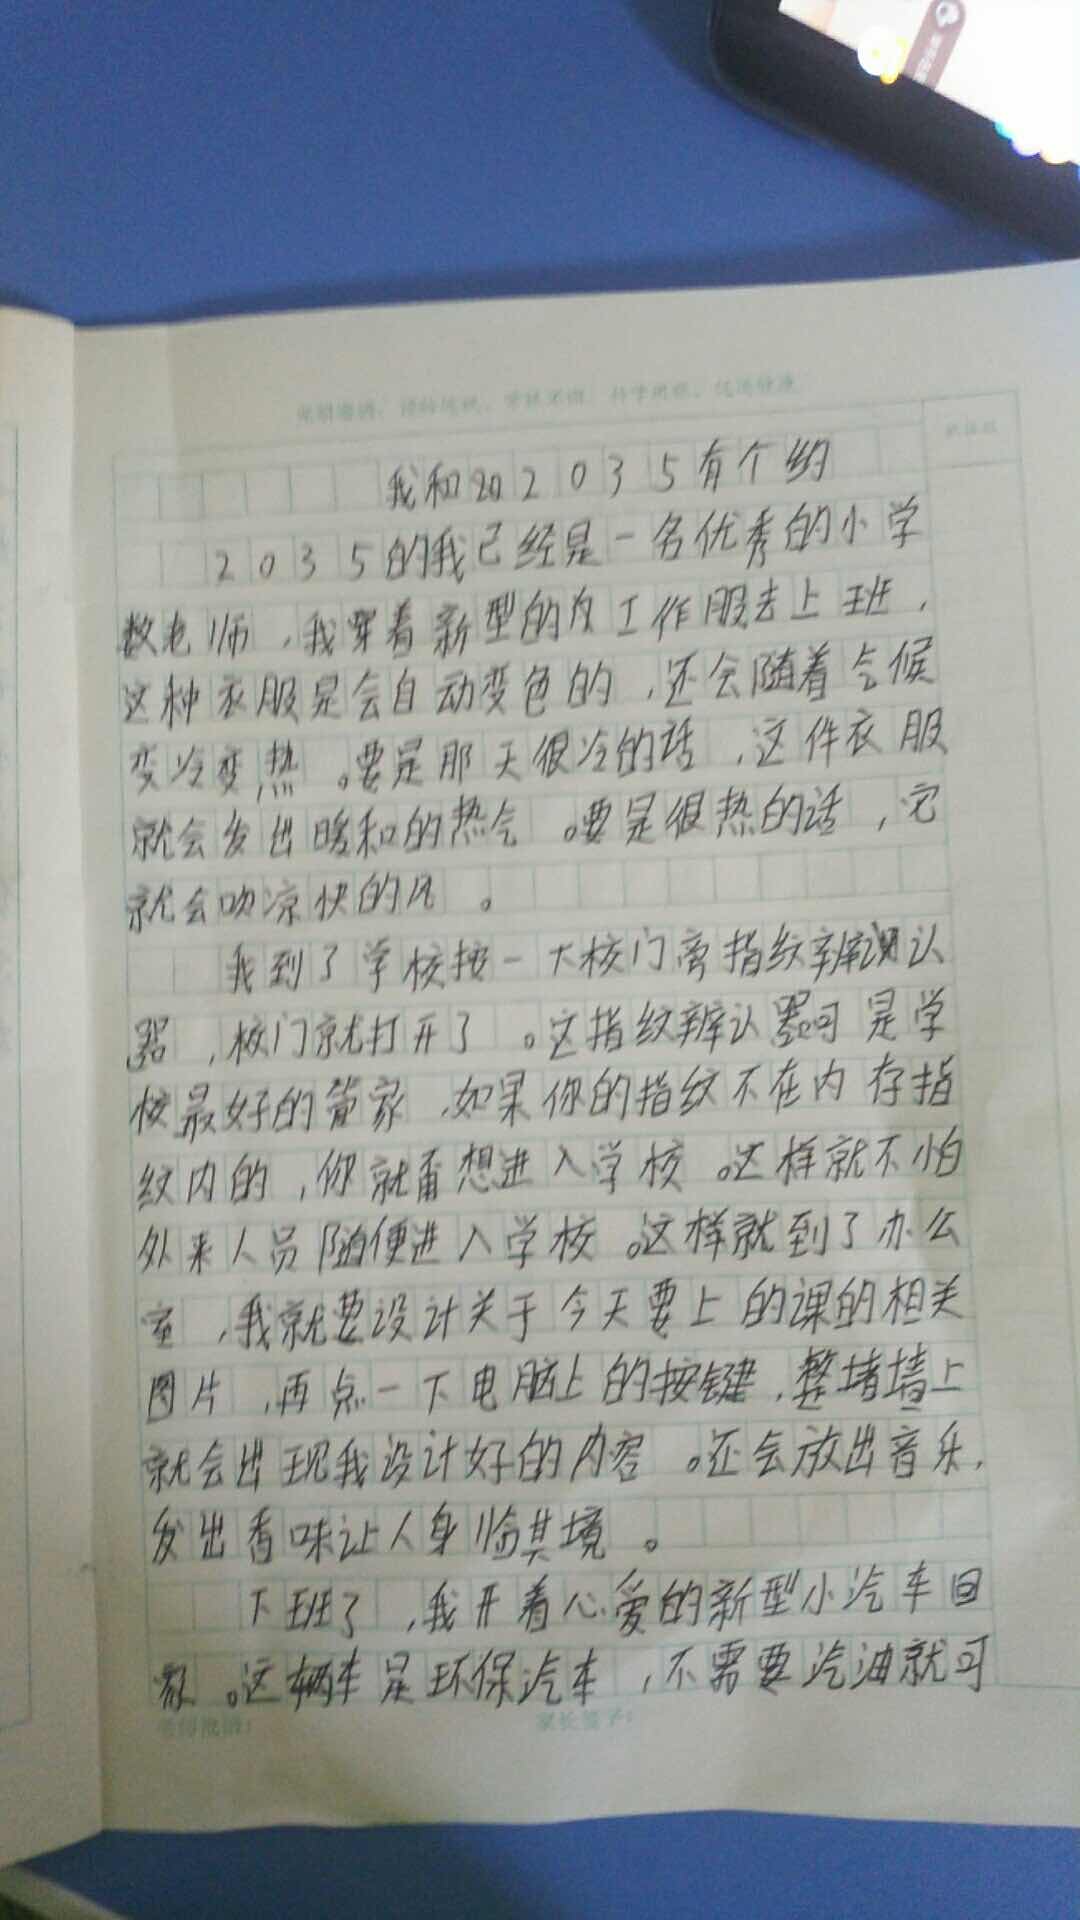 我和2035有个约
2035的我已经是一名优秀的小学
教老师，我穿着新型的内工作服去上班，
这种衣服是会自动变色的，还会随着气候
变冷变热。要是那天很冷的话，这件衣服
就会发出暖和的热气。要是很热的话，它
就会吹凉快的风。
我到了学校按一大校门旁指纹辨认
器，校门就打开了。这指纹辨认器可是学
校最好的管家，如果你的指纹不在内存指
纹内的，你就甭想进入学校。这样就不怕
外来人员随便进入学校。这样就到了办公
室，我就要设计关于今天要上的课的相关
图片，再点一下电脑上的按键，整堵墙上
就会出现我设计好的内容。还会放出音乐，
发出香味让人身临其境。
下班了，我开着心爱的新型小汽车回
家。这辆车是环保汽车，不需要汽油就可
家长签字：